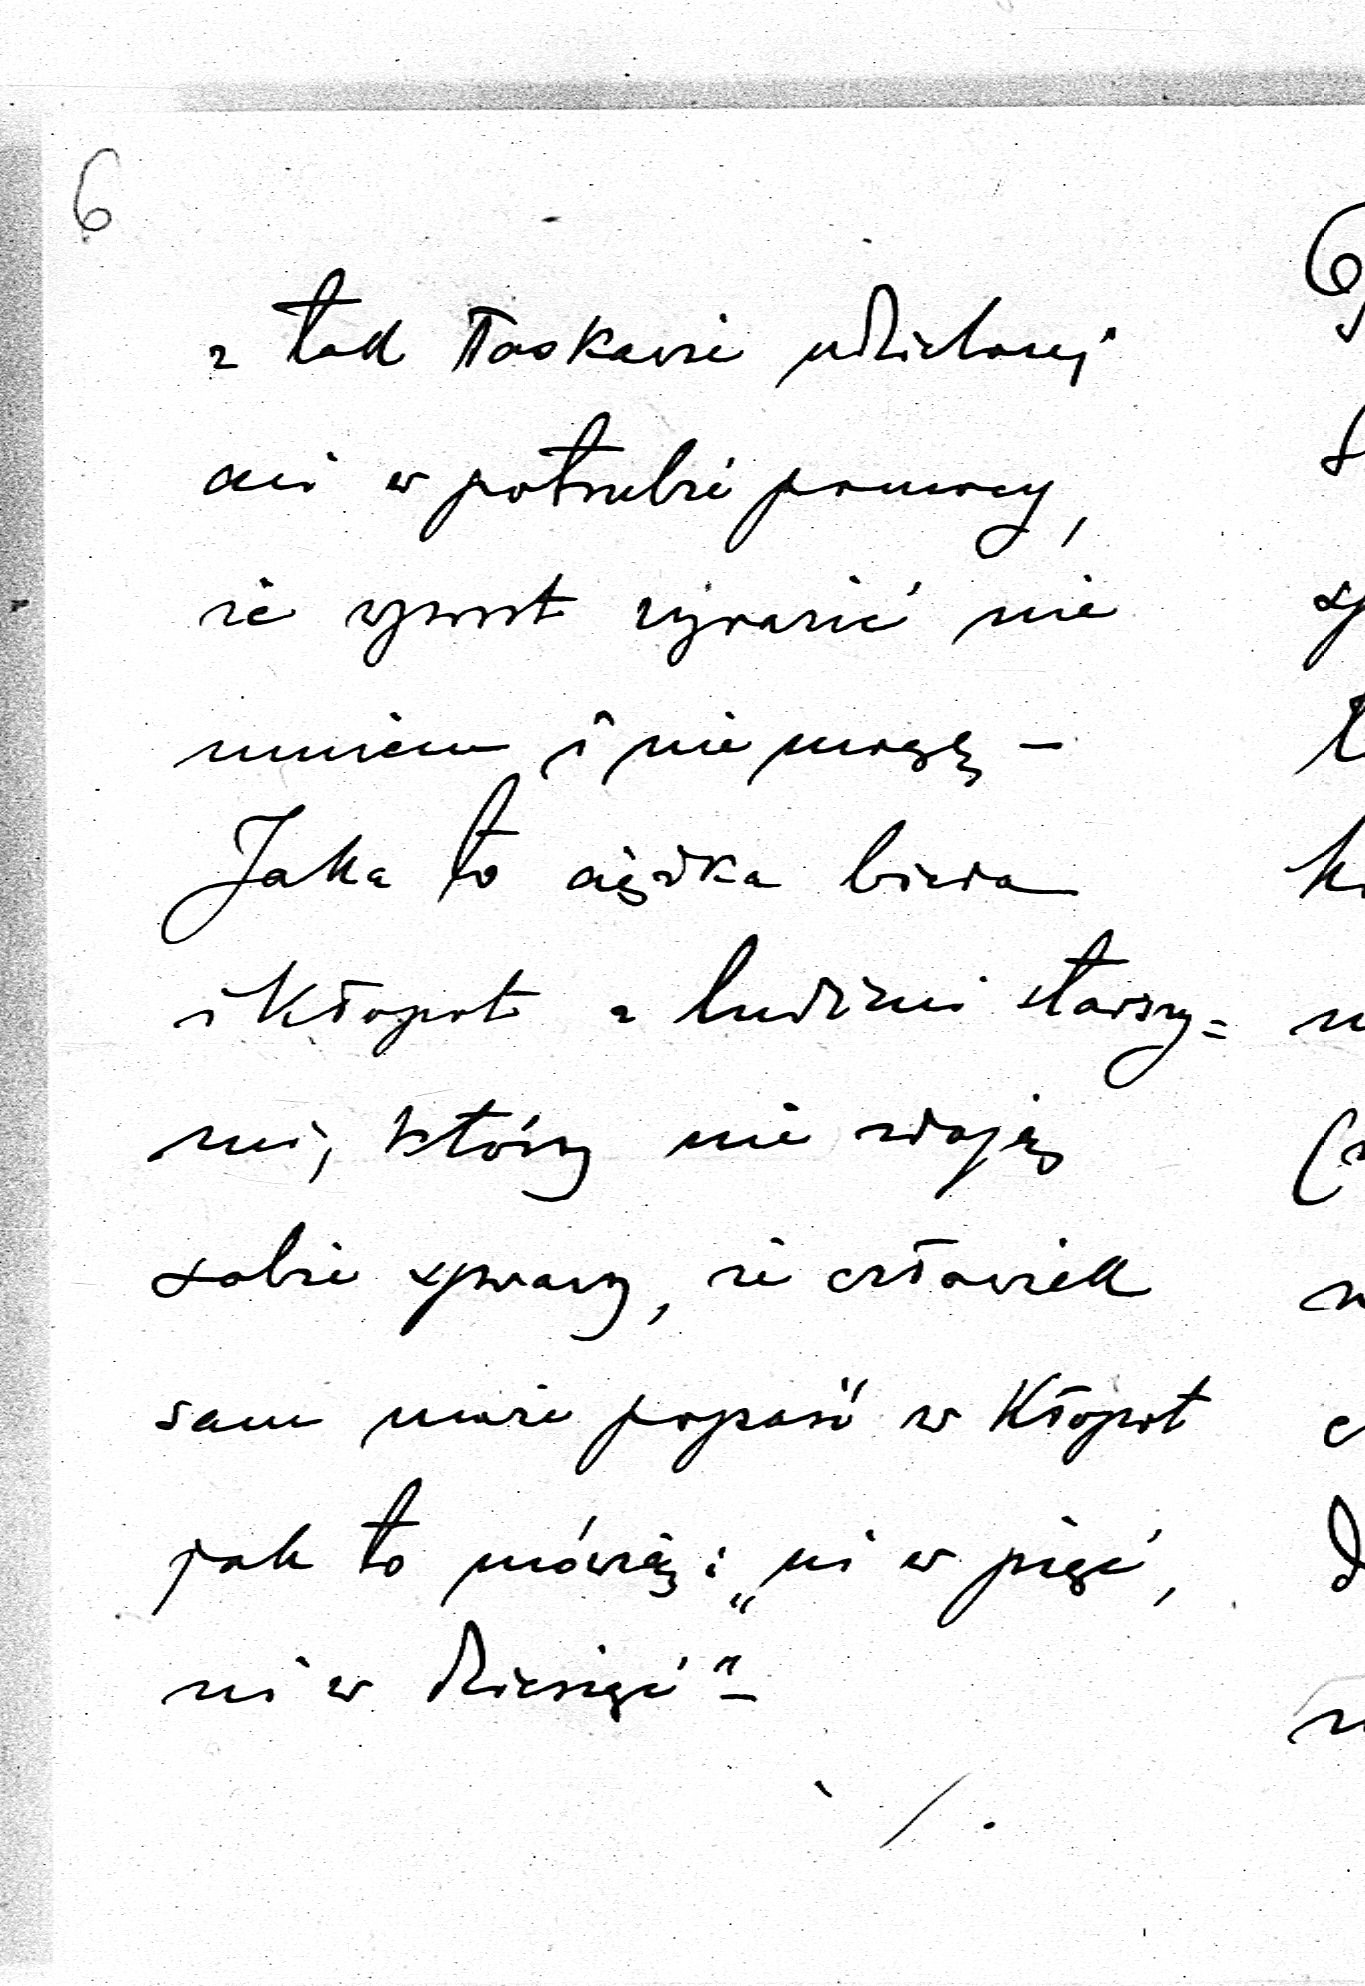 6
z tak łaskawie udzielonej
mi w potrzebie pomocy,
że wprost wyrazić nie
umiem i nie mogę –
Jaka to ciężka bieda
i kłopot z ludźmi starszy=
mi, którzy nie zdają
sobie sprawy, że człowiek
sam może popaść w kłopot
jak to mówią: „ni w pięć,
ni w dziesięć" –
/.